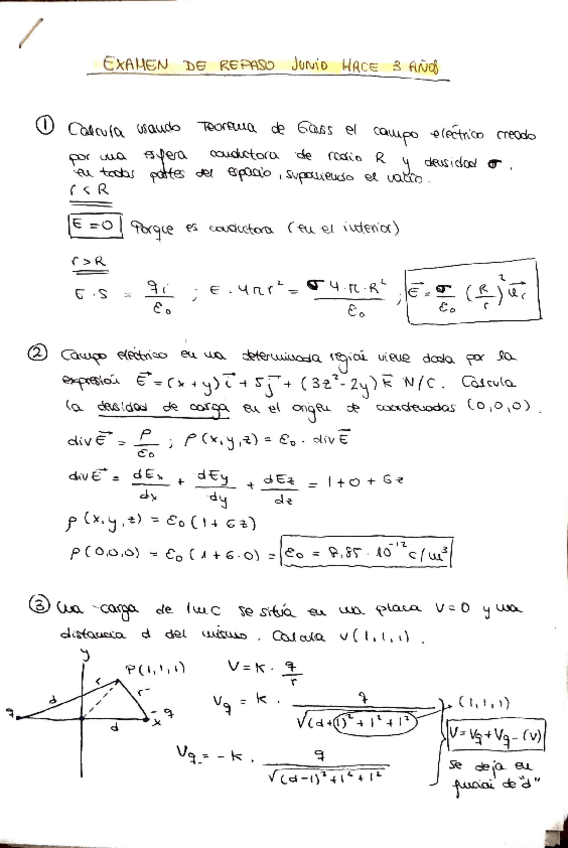 EXAMEN DE REPASO JUNIO HACE 3 AÑOS
① Calcula usando Teorema de Gass el campo eléctrico creado
por una esfera conductora de radio R y densidad σ,
en todas partes del espacio, suponiendo el vacío.
r < R
E = 0 Porque es conductora (en el interior)
r > R
E · S = qi/ε₀ ; E · 4πr² = σ 4·π·R²/ε₀ ; E⃗ = σ/ε₀ (R/r)² u⃗r
② Campo eléctrico en una determinada región viene dada por la
expresión E⃗ = (x+y)i⃗ + 5j⃗ + (3z²-2y)k⃗ N/C. Calcula
la densidad de carga en el origen de coordenadas (0,0,0).
div E⃗ = ρ/ε₀ ; ρ(x,y,z) = ε₀ · div E⃗
div E⃗ = dEx/dx + dEy/dy + dEz/dz = 1+0+6z
ρ(x,y,z) = ε₀(1+6z)
ρ(0,0,0) = ε₀(1+6·0) = ε₀ = 8,85·10⁻¹² c/m³
③ Una carga de 1mC se sitúa en una placa V=0 y una
distancia d del mismo. Calcula v(1,1,1).
y P(1,1,1) V = K · q/r
q d r r d -q x
Vq = K · q/√((d+1)²+1²+1²) → (1,1,1)
V = Vq + Vq- (v)
Vq- = -K · q/√((d-1)²+1²+1²)
se deja en
función de "d"